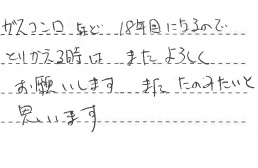 ガスコンロなど 18年目になるので
とりかえる時は またよろしく
お願いします また たのみたいと
思います